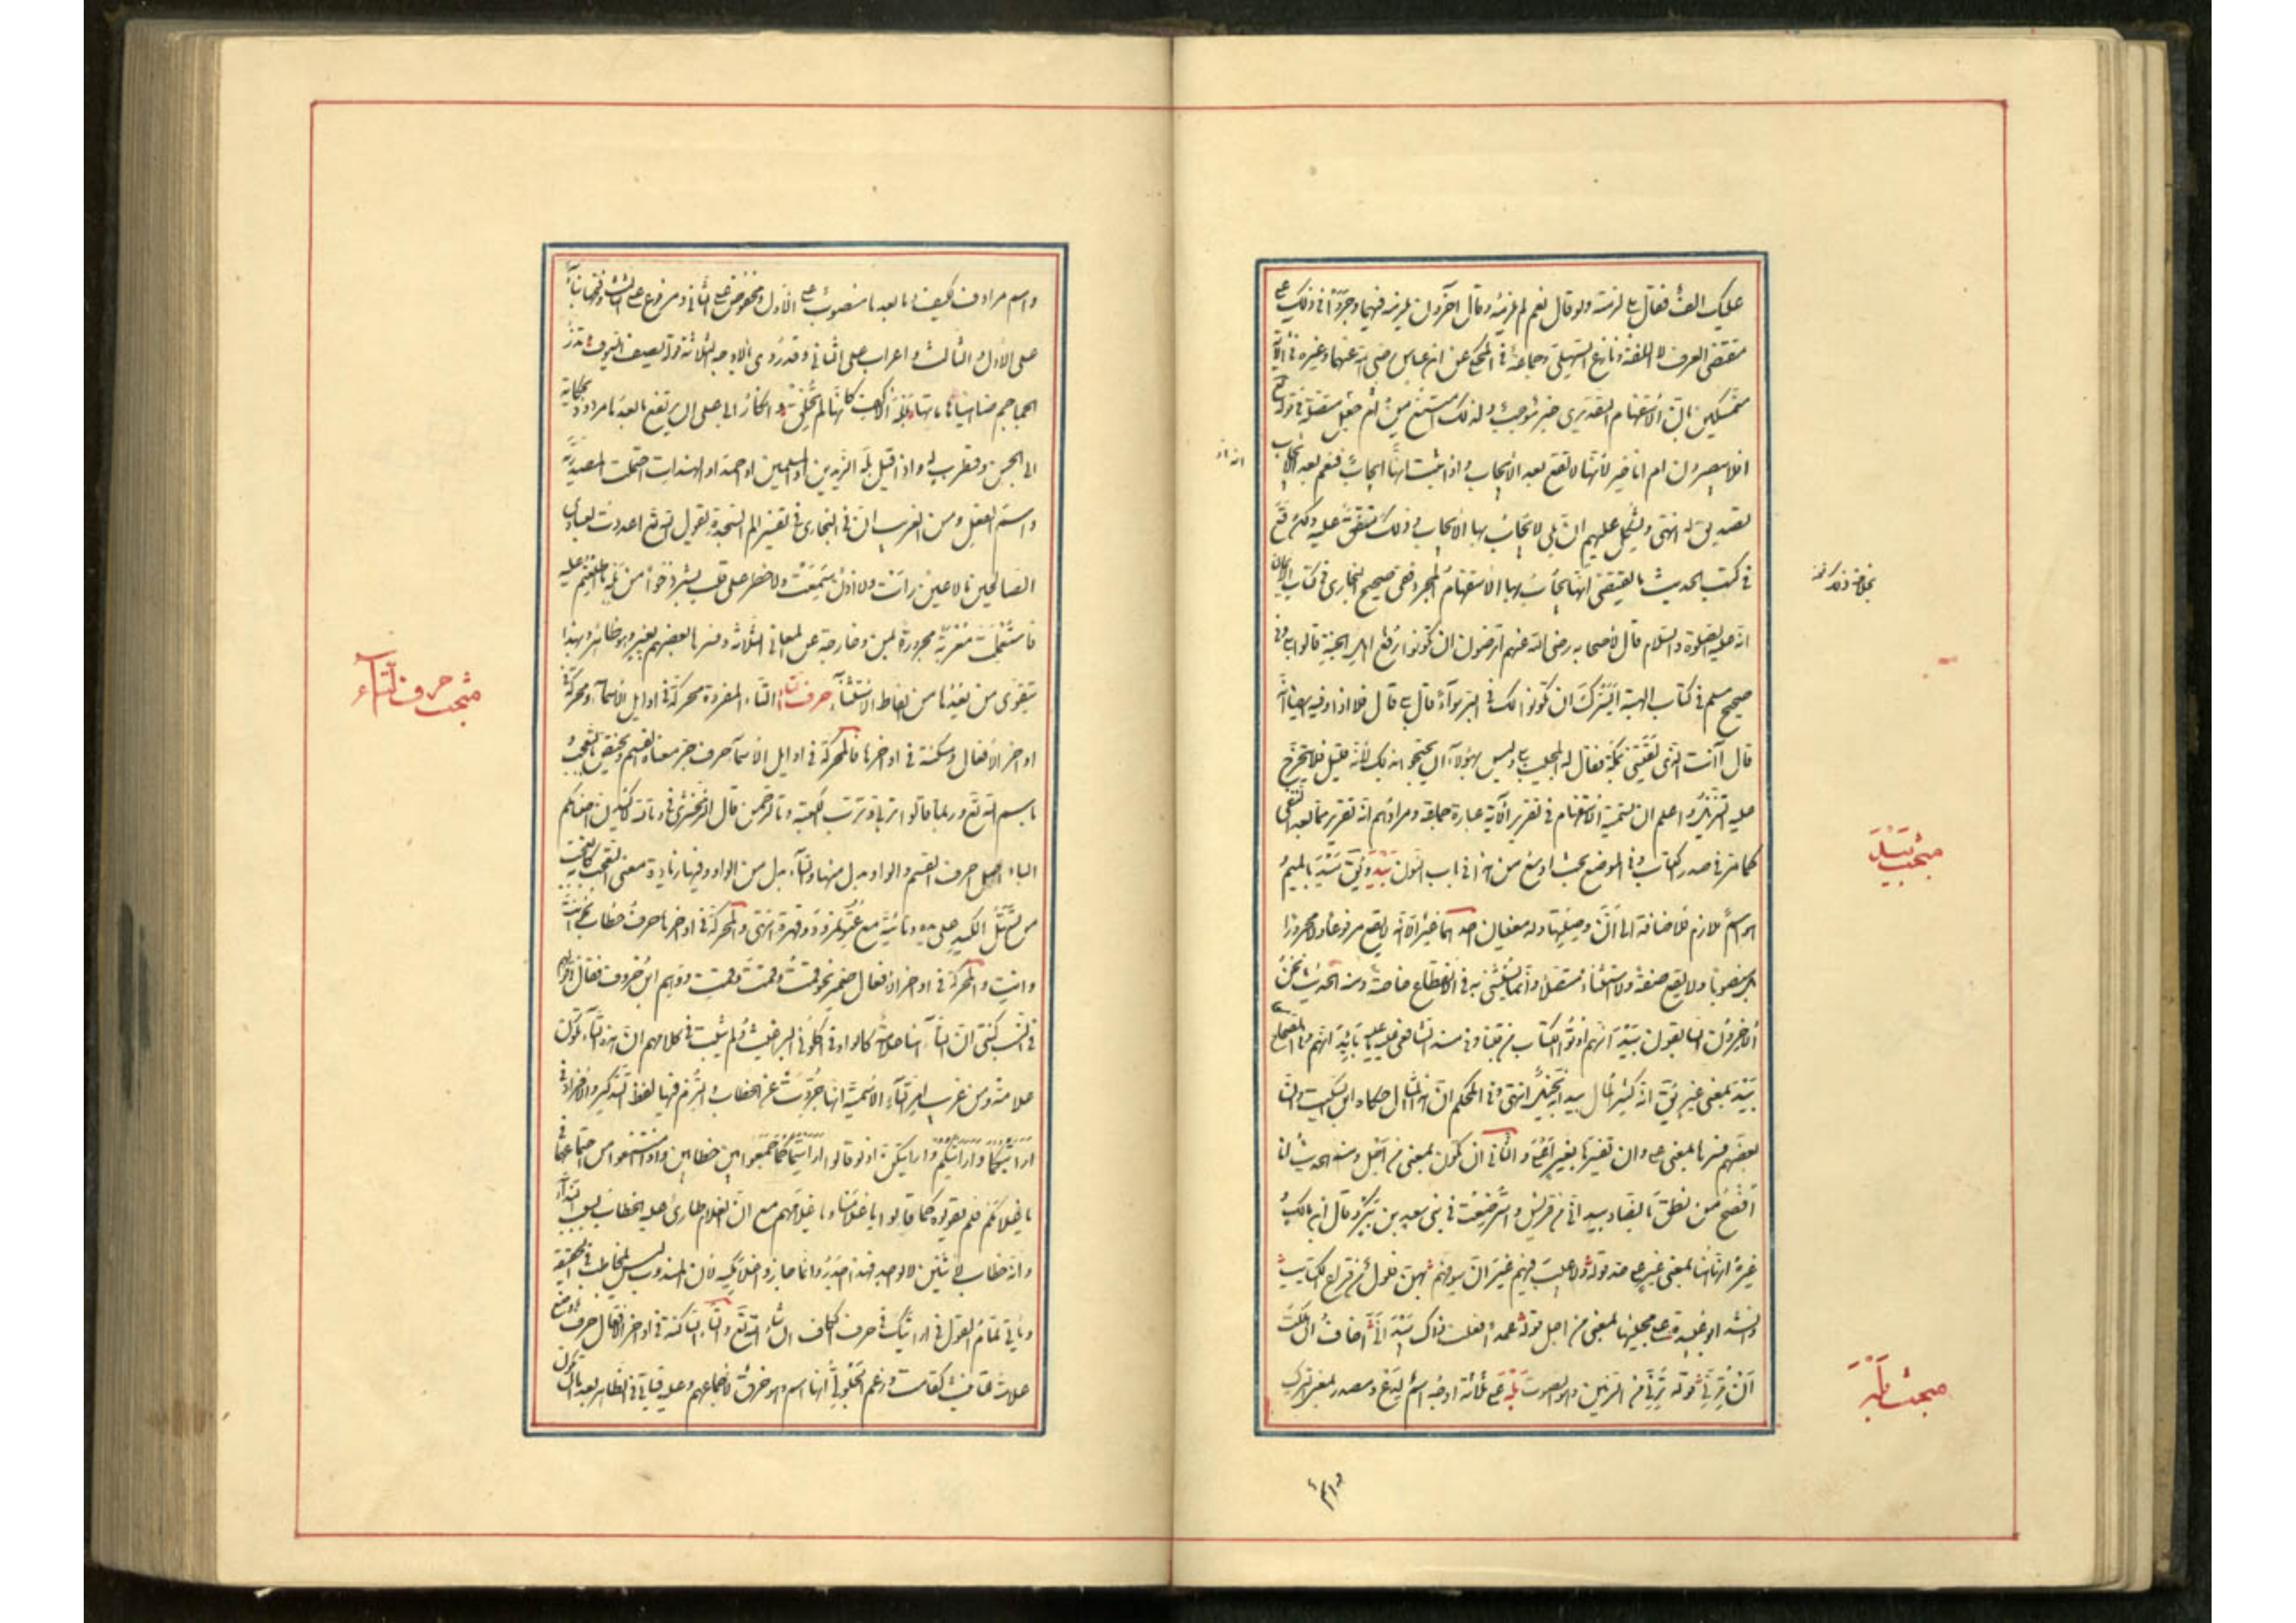 عليك الف فقال بلى لزمته ولو قال نعم لم يلزمه وقال آخرون يلزمه فيهما وجروا في ذلك على
مقتضى العرف لا اللغة ونازع السهيلي وجماعة في المحكي عن ابن عباس رضي الله عنهما وغيره في الآية
متمسكين بان الاستفهام التقريري خبر موجب ولذلك امتنع من جعل متصلة في قوله تع
افلا تبصرون ام انا خير لانها لا تقع بعد الايجاب واذا ثبت انه ايجاب فنعم بعد الايجاب
تصديق له انتهى ويشكل عليهم ان بلى لا يجاب بها الايجاب وذلك متفق عليه ولكن وقع
في كتب الحديث ما يقتضي انها يجاب بها الاستفهام المجرد ففي صحيح البخاري في كتاب الايمان
انه عليه الصلوة والسلام قال لاصحابه رضي الله عنهم اترضون ان تكونوا ربع اهل الجنة قالوا بلى وفي
صحيح مسلم في كتاب الهبة ايسرك ان يكونوا لك في البر سواء قال بلى قال فلا اذا وفيه ايضا انه
قال آانت الذي لقيتني بمكة فقال له المجيب بلى وليس لهؤلاء ان يحتجوا بذلك لانه قليل فلا يتخرج
عليه التنزيل واعلم ان تسمية الاستفهام في تقرير الآية عبارة جماعة ومرادهم انه تقرير بما بعد النفي
كما مر في صدر الكتاب وفي الموضع بحث اوسع من هذا في باب النون بيد ويق ميد بالميم
هو اسم ملازم للاضافة الى ان وصلتها وله معنيان احدهما غير الا انه لا يقع مرفوعا ولا مجرورا
بل منصوبا ولا يقع صفة ولا استثناء متصلا وانما يستثنى به في الانقطاع خاصة ومنه الحديث نحن
الآخرون السابقون بيد انهم اوتوا الكتاب من قبلنا وفي مسند الشافعي بائد انهم وفي الصحاح
بيد بمعنى غير يق انه كثير المال بيد انه بخيل انتهى وفي المحكم ان هذا المثال حكاه ابن السكيت وان
بعضهم فسرها بمعنى على وان تفسيرها بغير اعلى والثاني ان تكون بمعنى من اجل ومنه الحديث انا
افصح من نطق بالضاد بيد اني من قريش واسترضعت في بني سعد بن بكر وقال ابن مالك و
غيره انها هنا بمعنى غير على حد قوله ولا عيب فيهم غير ان سيوفهم بهن فلول من قراع الكتايب
وانشد ابو عبيدة على مجيئها بمعنى من اجل قوله عمدا فعلت ذاك بيد اني اخاف ان هلكت
ان ترني قوله ترني من الرنين وهو الصوت بله على ثلاثة اوجه اسم ليدع ومصدر بمعنى الترك
انه نافذ
مبحث بيد
مبحث بله
واسم
واسم مرادف لكيف وما بعدها منصوب على الاول ومخفوض على الثاني ومرفوع على الثالث وفتحها بناء
على الاول والثالث واعراب على الثاني وقد روي بالاوجه الثلاثة قوله يصف السيوف تذر
الجماجم ضاحيا هاماتها بله الاكف كانها لم تخلق وانكار ابي علي ان يرتفع ما بعدها مردود بحكاية
ابي الحسن وقطرب له واذا قيل بله الزيدين او المسلمين او احمد او الهندات احتملت المصدرية
واسم الفعل ومن الغريب ان في البخاري في تفسير الم السجدة يقول الله تع اعددت لعبادي
الصالحين ما لا عين رأت ولا اذن سمعت ولا خطر على قلب بشر ذخرا من بله ما اطلعتم عليه
فاستعملت معربة مجرورة بمن وخارجة عن المعاني الثلاثة وفسرها بعضهم بغير وهو ظاهر وبهذا
يتقوى من يعدها من الفاظ الاستثناء حرف التاء التاء المفردة محركة في اوايل الاسماء ومحركة في
اواخر الافعال ومسكنة في اواخرها فالمحركة في اوايل الاسماء حرف جر معناه القسم وتختص بالتعجب و
باسم الله تع وربما قالوا تربي وترب الكعبة وتالرحمن قال الزمخشري في وتالله لاكيدن اصنامكم
الباء اصل احرف القسم والواو بدل منها والتاء بدل من الواو وفيها زيادة معنى التعجب كانه تعجب
من تسهل الكيد على يده وتأتيه مع عتو نمرود وقهره انتهى والمحركة في اواخرها حرف خطاب نحو انت
وانت والمحركة في اواخر الافعال ضمير نحو قمت وقمت وقمت ووهم ابن خروف فقال في قولهم
في النسب كنتي ان التاء هنا علامة كالواو في اكلوني البراغيث ولم يثبت في كلامهم ان هذه التاء تكون
علامة ومن غريب امر التاء الاسمية انها جردت عن الخطاب والتزم فيها لفظ التذكير والافراد في
ارأيتكما وارأيتكم وارأيتكن اذ لو قالوا ارأيتماكما جمعوا بين خطابين واذا امتنعوا من اجتماعهما في
يا غلامكم فلم يقولوه كما قالوا يا غلامنا ويا غلامهم مع ان الغلام طارئ عليه الخطاب بسبب النداء
وانه خطاب لاثنين لا لواحد فهذا اجدر وانما جاز واغلامكيه لان المندوب ليس بمخاطب في الحقيقة
ويأتي تمام القول في ارأيتك في حرف الكاف ان شاء الله تع والتاء الساكنة في اواخر الافعال حرف وضع
علامة للتأنيث كقامت وزعم الجلولي انها اسم وهو خرق لاجماعهم وعليه فيأتي في الظاهر بعدها ان يكون
مبحث حرف التاء